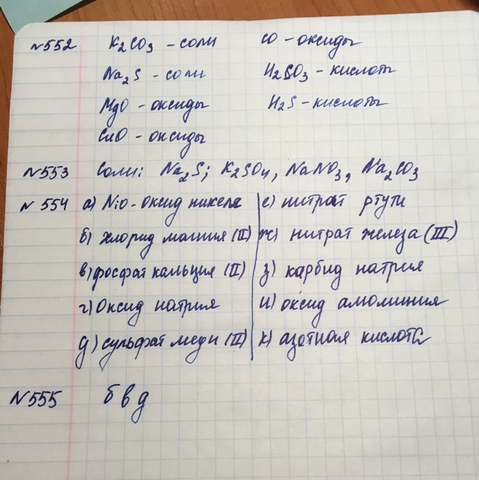 №552 K₂CO₃ - соли CO - оксиды
Na₂S - соли H₂SO₃ - кислоты
MgO - оксиды H₂S - кислоты
CuO - оксиды
№553 Соли: Na₂S; K₂SO₄, NaNO₃, Na₂CO₃
№554 а) NiO - оксид никеля е) нитрат ртути
б) хлорид магния (II) ж) нитрат железа (III)
в) фосфат кальция (II) з) карбид натрия
г) Оксид натрия и) оксид алюминия
д) сульфат меди (II) к) азотная кислота
№555 б в д